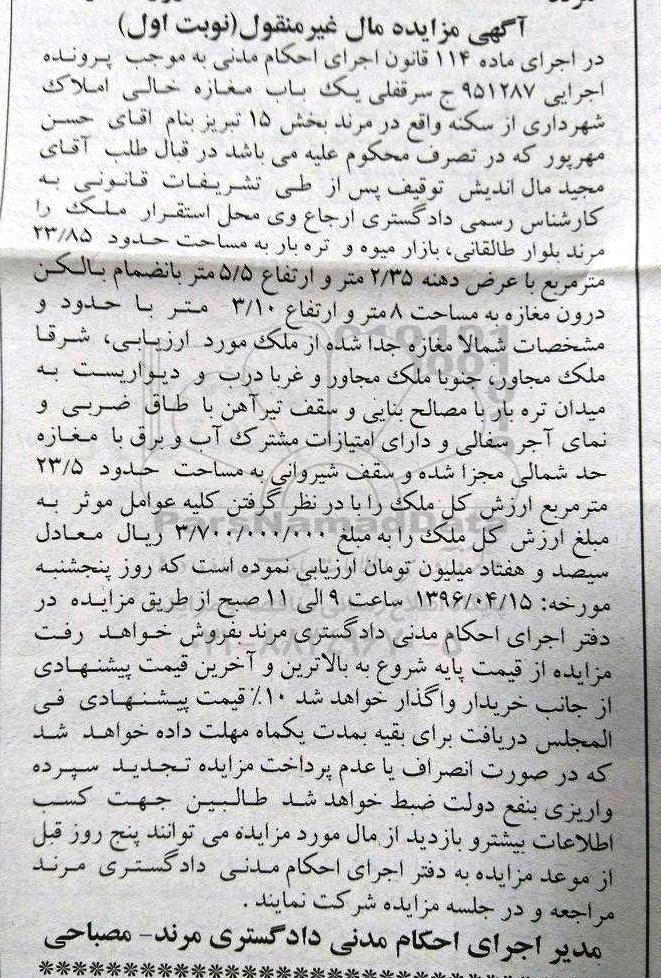 آگهی مزایده مال غیرمنقول(نوبت اول)
در اجرای ماده ۱۱۴ قانون اجرای احکام مدنی به موجب پرونده
اجرایی ۹۵۱۲۸۷ ج سرقفلی یک باب مغازه خالی املاک
شهرداری از سکنه واقع در مرند بخش ۱۵ تبریز بنام اقای حسن
مهرپور که در تصرف محکوم علیه می باشد در قبال طلب آقای
مجید مال اندیش توقیف پس از طی تشریفات قانونی به
کارشناس رسمی دادگستری ارجاع وی محل استقرار ملک را
مرند بلوار طالقانی، بازار میوه و تره بار به مساحت حدود ۲۳/۸۵
مترمربع با عرض دهنه ۲/۳۵ متر و ارتفاع ۵/۵ متر بانضمام بالکن
درون مغازه به مساحت ۸ متر و ارتفاع ۳/۱۰ متر با حدود و
مشخصات شمالا مغازه جدا شده از ملک مورد ارزیابی، شرقا
ملک مجاور، جنوبا ملک مجاور و غربا درب و دیواریست به
میدان تره بار با مصالح بنایی و سقف تیرآهن با طاق ضربی و
نمای آجر سفالی و دارای امتیازات مشترک آب و برق با مغازه
حد شمالی مجزا شده و سقف شیروانی به مساحت حدود ۲۳/۵
مترمربع ارزش کل ملک را با در نظر گرفتن کلیه عوامل موثر به
مبلغ ارزش کل ملک را به مبلغ ۳/۷۰۰/۰۰۰/۰۰۰ ریال معادل
سیصد و هفتاد میلیون تومان ارزیابی نموده است که روز پنجشنبه
مورخه: ۱۳۹۶/۰۴/۱۵ ساعت ۹ الی ۱۱ صبح از طریق مزایده در
دفتر اجرای احکام مدنی دادگستری مرند بفروش خواهد رفت
مزایده از قیمت پایه شروع به بالاترین و آخرین قیمت پیشنهادی
از جانب خریدار واگذار خواهد شد ۱۰٪ قیمت پیشنهادی فی
المجلس دریافت برای بقیه بمدت یکماه مهلت داده خواهد شد
که در صورت انصراف یا عدم پرداخت مزایده تجدید سپرده
واریزی بنفع دولت ضبط خواهد شد طالبین جهت کسب
اطلاعات بیشترو بازدید از مال مورد مزایده می توانند پنج روز قبل
از موعد مزایده به دفتر اجرای احکام مدنی دادگستری مرند
مراجعه و در جلسه مزایده شرکت نمایند .
مدیر اجرای احکام مدنی دادگستری مرند- مصباحی
ParsNamadData